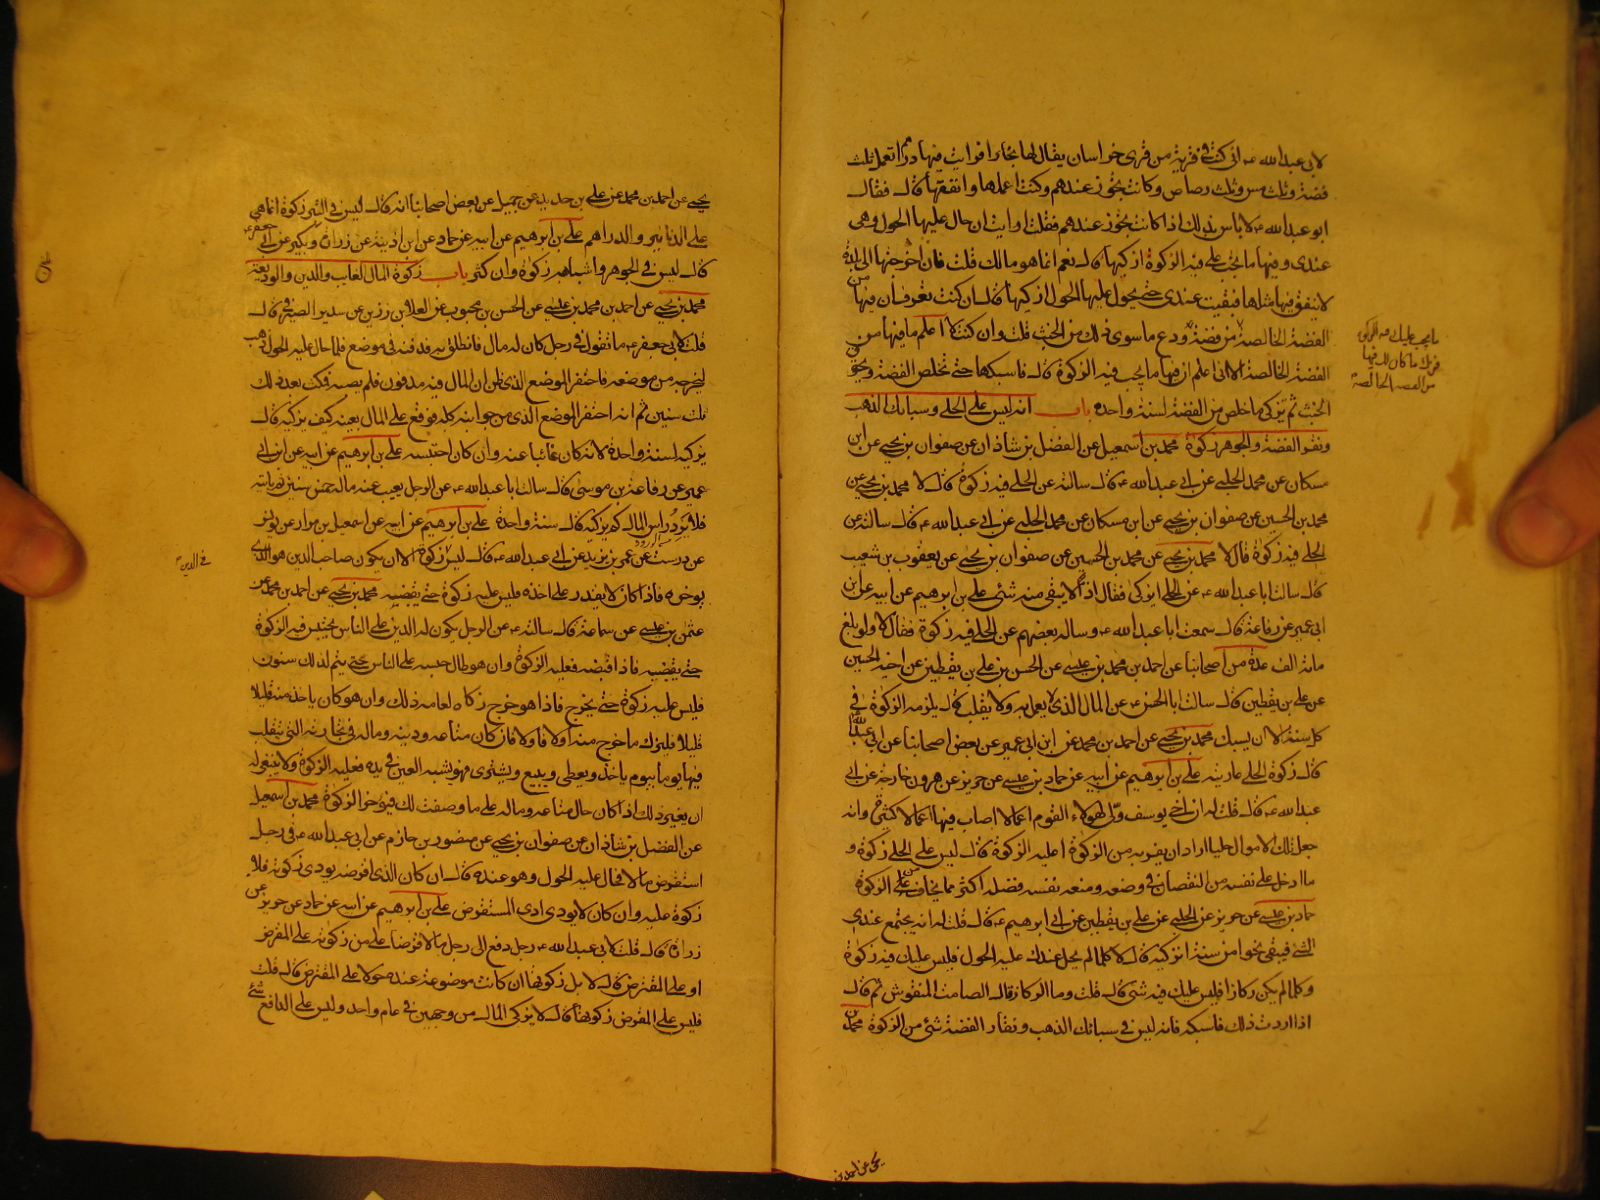 لابى عبد الله ع انى كنت فى قرية من قرى خراسان يقال لها بخارا فرايت فيها دراهم تعمل ثلث
فضة وثلث مس وثلث رصاص وكانت تجوز عندهم وكنت اعملها وانفقها قال فقال
ابو عبد الله ع لا باس بذلك اذا كانت تجوز عندهم فقلت ارايت ان حال عليها الحول وهى
عندى وفيها ما يجب على فيه الزكوة ازكيها قال نعم انما هو مالك قلت فان اخرجتها الى بلدة
لا ينفق فيها مثلها فبقيت عندى حتى يحول عليها الحول ازكيها قال ان كنت تعرف ان فيها من
الفضة الخالصة من فضة ودع ما سوى ذلك من الخبث قلت وان كنت لا اعلم ما فيها من
الفضة الخالصة الا انى اعلم ان فيها ما يجب فيه الزكوة قال فاسبكها حتى تخلص الفضة ويحترق
الخبث ثم يزكى ما خلص من الفضة لسنة واحدة باب انه ليس على الحلى وسبائك الذهب
ونقر الفضة والجوهر زكوة محمد بن اسمعيل عن الفضل بن شاذان عن صفوان بن يحيى عن ابن
مسكان عن محمد الحلبى عن ابى عبد الله ع قال سالته عن الحلى فيه زكوة قال لا محمد بن يحيى عن
محمد بن الحسين عن صفوان بن يحيى عن ابن مسكان عن محمد الحلبى عن ابى عبد الله ع قال سالته عن
الحلى فيه زكوة قال لا محمد بن يحيى عن محمد بن الحسين عن صفوان بن يحيى عن يعقوب بن شعيب
قال سالت ابا عبد الله ع عن الحلى ايزكى فقال اذا لا يبقى منه شئ على بن ابرهيم عن ابيه عن ابن
ابى عمير عن رفاعة قال سمعت ابا عبد الله ع وساله بعضهم عن الحلى فيه زكوة فقال لا ولو بلغ
مائة الف عدة من اصحابنا عن احمد بن محمد بن عيسى عن الحسن بن على بن يقطين عن اخيه الحسين
عن على بن يقطين قال سالت ابا الحسن ع عن المال الذى لا يعمل به ولا يقلب قال يلزمه الزكوة فى
كل سنة الا ان يسبك محمد بن يحيى عن احمد بن محمد عن ابن ابى عمير عن بعض اصحابنا عن ابى عبد الله
قال زكوة الحلى عاريته على بن ابرهيم عن ابيه عن حماد بن عيسى عن حريز عن هرون خارجة عن ابى
عبد الله ع قال قلت له ان اخى يوسف ولى لهولاء القوم اعمالا اصاب فيها اموالا كثيرة وانه
جعل تلك الاموال حليا اراد ان يفر به من الزكوة اعليه الزكوة قال ليس على الحلى زكوة و
ما ادخل على نفسه من النقصان فى وضعه ومنعه نفسه فضله اكثر مما يخاف من الزكوة
حماد بن عيسى عن حريز عن الحلبى عن على بن يقطين عن ابى ابرهيم ع قال قلت له انه يجتمع عندى
الشئ فيبقى نحوا من سنة انزكيه قال لا كلما لم يحل عندك عليه الحول فليس عليك فيه زكوة
وكلما لم يكن ركازا فليس عليك فيه شئ قال قلت وما الركاز قال الصامت المنقوش ثم قال
اذا اردت ذلك فاسبكه فانه ليس فى سبائك الذهب ونقار الفضة شئ من الزكوة محمد بن
من الفضة الخالصة
يحيى عن احمد بن
يحيى عن احمد بن محمد عن على بن حديد عن جميل عن بعض اصحابنا انه قال ليس فى التبر زكوة انما هى
على الدنانير والدراهم على بن ابرهيم عن ابيه عن حماد عن ابن اذينة عن زرارة وبكير عن ابى جعفر ع
قال ليس فى الجوهر واشباهه زكوة وان كثر باب زكوة المال الغايب والدين والوديعة
محمد بن يحيى عن احمد بن محمد بن عيسى عن الحسن بن محبوب عن العلا بن رزين عن سدير الصيرفى قال
قلت لابى جعفر ع ما تقول فى رجل كان له مال فانطلق به فدفنه فى موضع فلما حال عليه الحول ذهب
ليخرجه من موضعه فاحتفر الموضع الذى ظن ان المال فيه مدفون فلم يصبه فمكث بعد ذلك
ثلث سنين ثم انه احتفر الموضع الذى من جوانبه كله فوقع على المال بعينه كيف يزكيه قال
يزكيه لسنة واحدة لانه كان غائبا عنه وان كان احتبسه على بن ابرهيم عن ابيه عن ابن ابى
عمير عن رفاعة بن موسى قال سالت ابا عبد الله ع عن الرجل يغيب عنه ماله خمس سنين ثم ياتيه
فلا يرد راس المال كم يزكيه قال سنة واحدة على بن ابرهيم عن ابيه عن اسمعيل بن مرار عن يونس
عن درست عن عمر بن يزيد عن ابى عبد الله ع قال ليس زكوة الا ان يكون صاحب الدين هو الذى
فى الدين
يوخره فاذا كان لا يقدر على اخذه فليس عليه زكوة حتى يقبضه محمد بن يحيى عن احمد بن محمد عن
عثمن بن عيسى عن سماعة قال سالته ع عن الرجل يكون له الدين على الناس يحتبس فيه الزكوة
حتى يقبضه فاذا قبضه فعليه الزكوة وان هو طال حبسه على الناس حتى يتم لذلك سنون
فليس عليه زكوة حتى يخرج فاذا هو خرج زكاه لعامه ذلك وان هو كان ياخذ منه قليلا
قليلا فليزك ما خرج منه اولا فاولا فان كان متاعه ودينه وماله فى تجارته التى يتقلب
فيها يوما بيوم ياخذ ويعطى ويبيع ويشترى فهو يشبه العين فى يده فعليه الزكوة ولا ينبغى له
ان يغير ذلك اذا كان حال متاعه وماله على ما وصفت لك فيوخر الزكوة محمد بن اسمعيل
عن الفضل بن شاذان عن صفوان بن يحيى عن منصور بن حازم عن ابى عبد الله ع فى رجل
استقرض مالا فحال عليه الحول وهو عنده قال ان كان الذى اقرضه يودى زكوته فلا
زكوة عليه وان كان لا يودى ادى المستقرض على بن ابرهيم عن ابيه عن حماد عن حريز عن
زرارة قال قلت لابى عبد الله ع رجل دفع الى رجل مالا قرضا على من زكوته على المقرض
او على المقترض قال لا بل زكوتها ان كانت موضوعة عنده حولا على المقترض قال قلت
فليس على المقرض زكوتها قال لا يزكى المال من وجهين فى عام واحد وليس على الدافع شئ